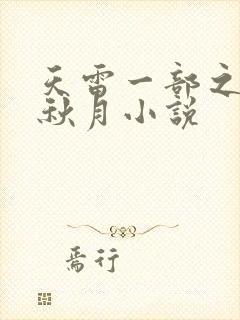 天雷一部之
秋月小說
焉行